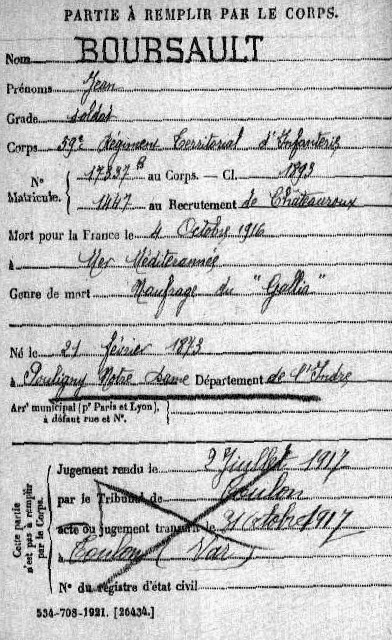 PARTIE À REMPLIR PAR LE CORPS.
Nom BOURSAULT
Prénoms Jean
Grade soldat
Corps 59e Régiment Territorial d'Infanterie
N° Matricule. { 17337 B au Corps. — Cl. 1893
1447 au Recrutement de Châteauroux
Mort pour la France le 4 Octobre 1916
à Mer Méditerannée
Genre de mort Naufrage du "Gallia"
Né le 21 février 1873
à Pouligny Notre Dame Département de l'Indre
Arrt municipal (pr Paris et Lyon),
à défaut rue et N°.
Cette partie
n'est pas à remplir
par le Corps.
Jugement rendu le 2 Juillet 1917
par le Tribunal de Toulon
acte ou jugement transcrit le 31 Octobre 1917
à Toulon (Var)
N° du registre d'état civil
534-708-1921. [26434.]